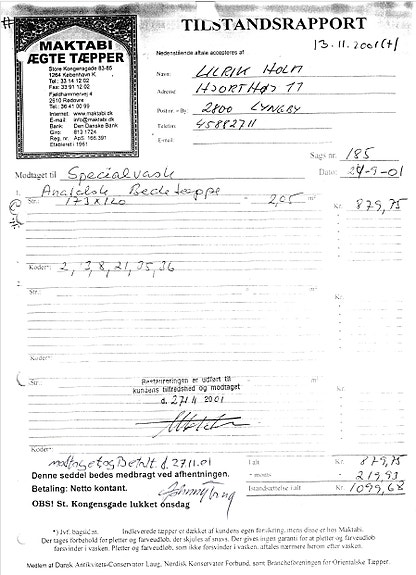 TILSTANDSRAPPORT
MAKTABI
ÆGTE TÆPPER
Store Kongensgade 83-85
1264 København K
Tel.: 33 14 12 02
Fax: 33 91 12 02
Fasanhammervej 4
2610 Rødovre
Tel.: 36 41 00 99
Internet: www.maktabi.dk
E-mail: info@maktabi.dk
Bank: Den Danske Bank
Giro: 813 1724
Reg. nr.: ApS 166.391
Etableret i 1961
13.11.2001(+)
Nedenstående aftale accepteres af
Navn: ULRIK HOLM
Adresse: HJORTHØJ 11
Postnr. - By: 2800 LYNGBY
Telefon: 45882711
E-mail:
Sags nr. 185
Dato: 24-9-01
Modtaget til Specialvask
1. Anatolsk Bedetæppe
Str.: 173 x 120 - 2,05 m² Kr. 879,75
Koder*: 2, 3, 8, 21, 35, 36
2.
Str.: m² Kr.
Koder*:
Str.: m² Kr.
Restaureringen er udført til
kundens tilfredshed og modtaget
d. 27/11 2001
Koder*:
modtaget og Betalt d. 27.11.01
I alt Kr. 879,75
+ moms 219,93
Istandsættelse i alt Kr. 1099,68
Denne seddel bedes medbragt ved afhentningen.
Betaling: Netto kontant.
OBS! St. Kongensgade lukket onsdag
*) Jvf. bagsiden. Indleverede tæpper er dækket af kundens egen forsikring, mens disse er hos Maktabi.
Der tages forbehold for pletter og farveudløb, der skjules af snavs. Der gives ingen garanti for at pletter og farveudløb
forsvinder i vasken. Pletter og farveudløb, som ikke forsvinder i vasken, aftales nærmere herom efter vasken.
Medlem af Dansk Antikvitets-Conservator Laug, Nordisk Konservator Forbund, samt Brancheforeningen for Orientalske Tæpper.